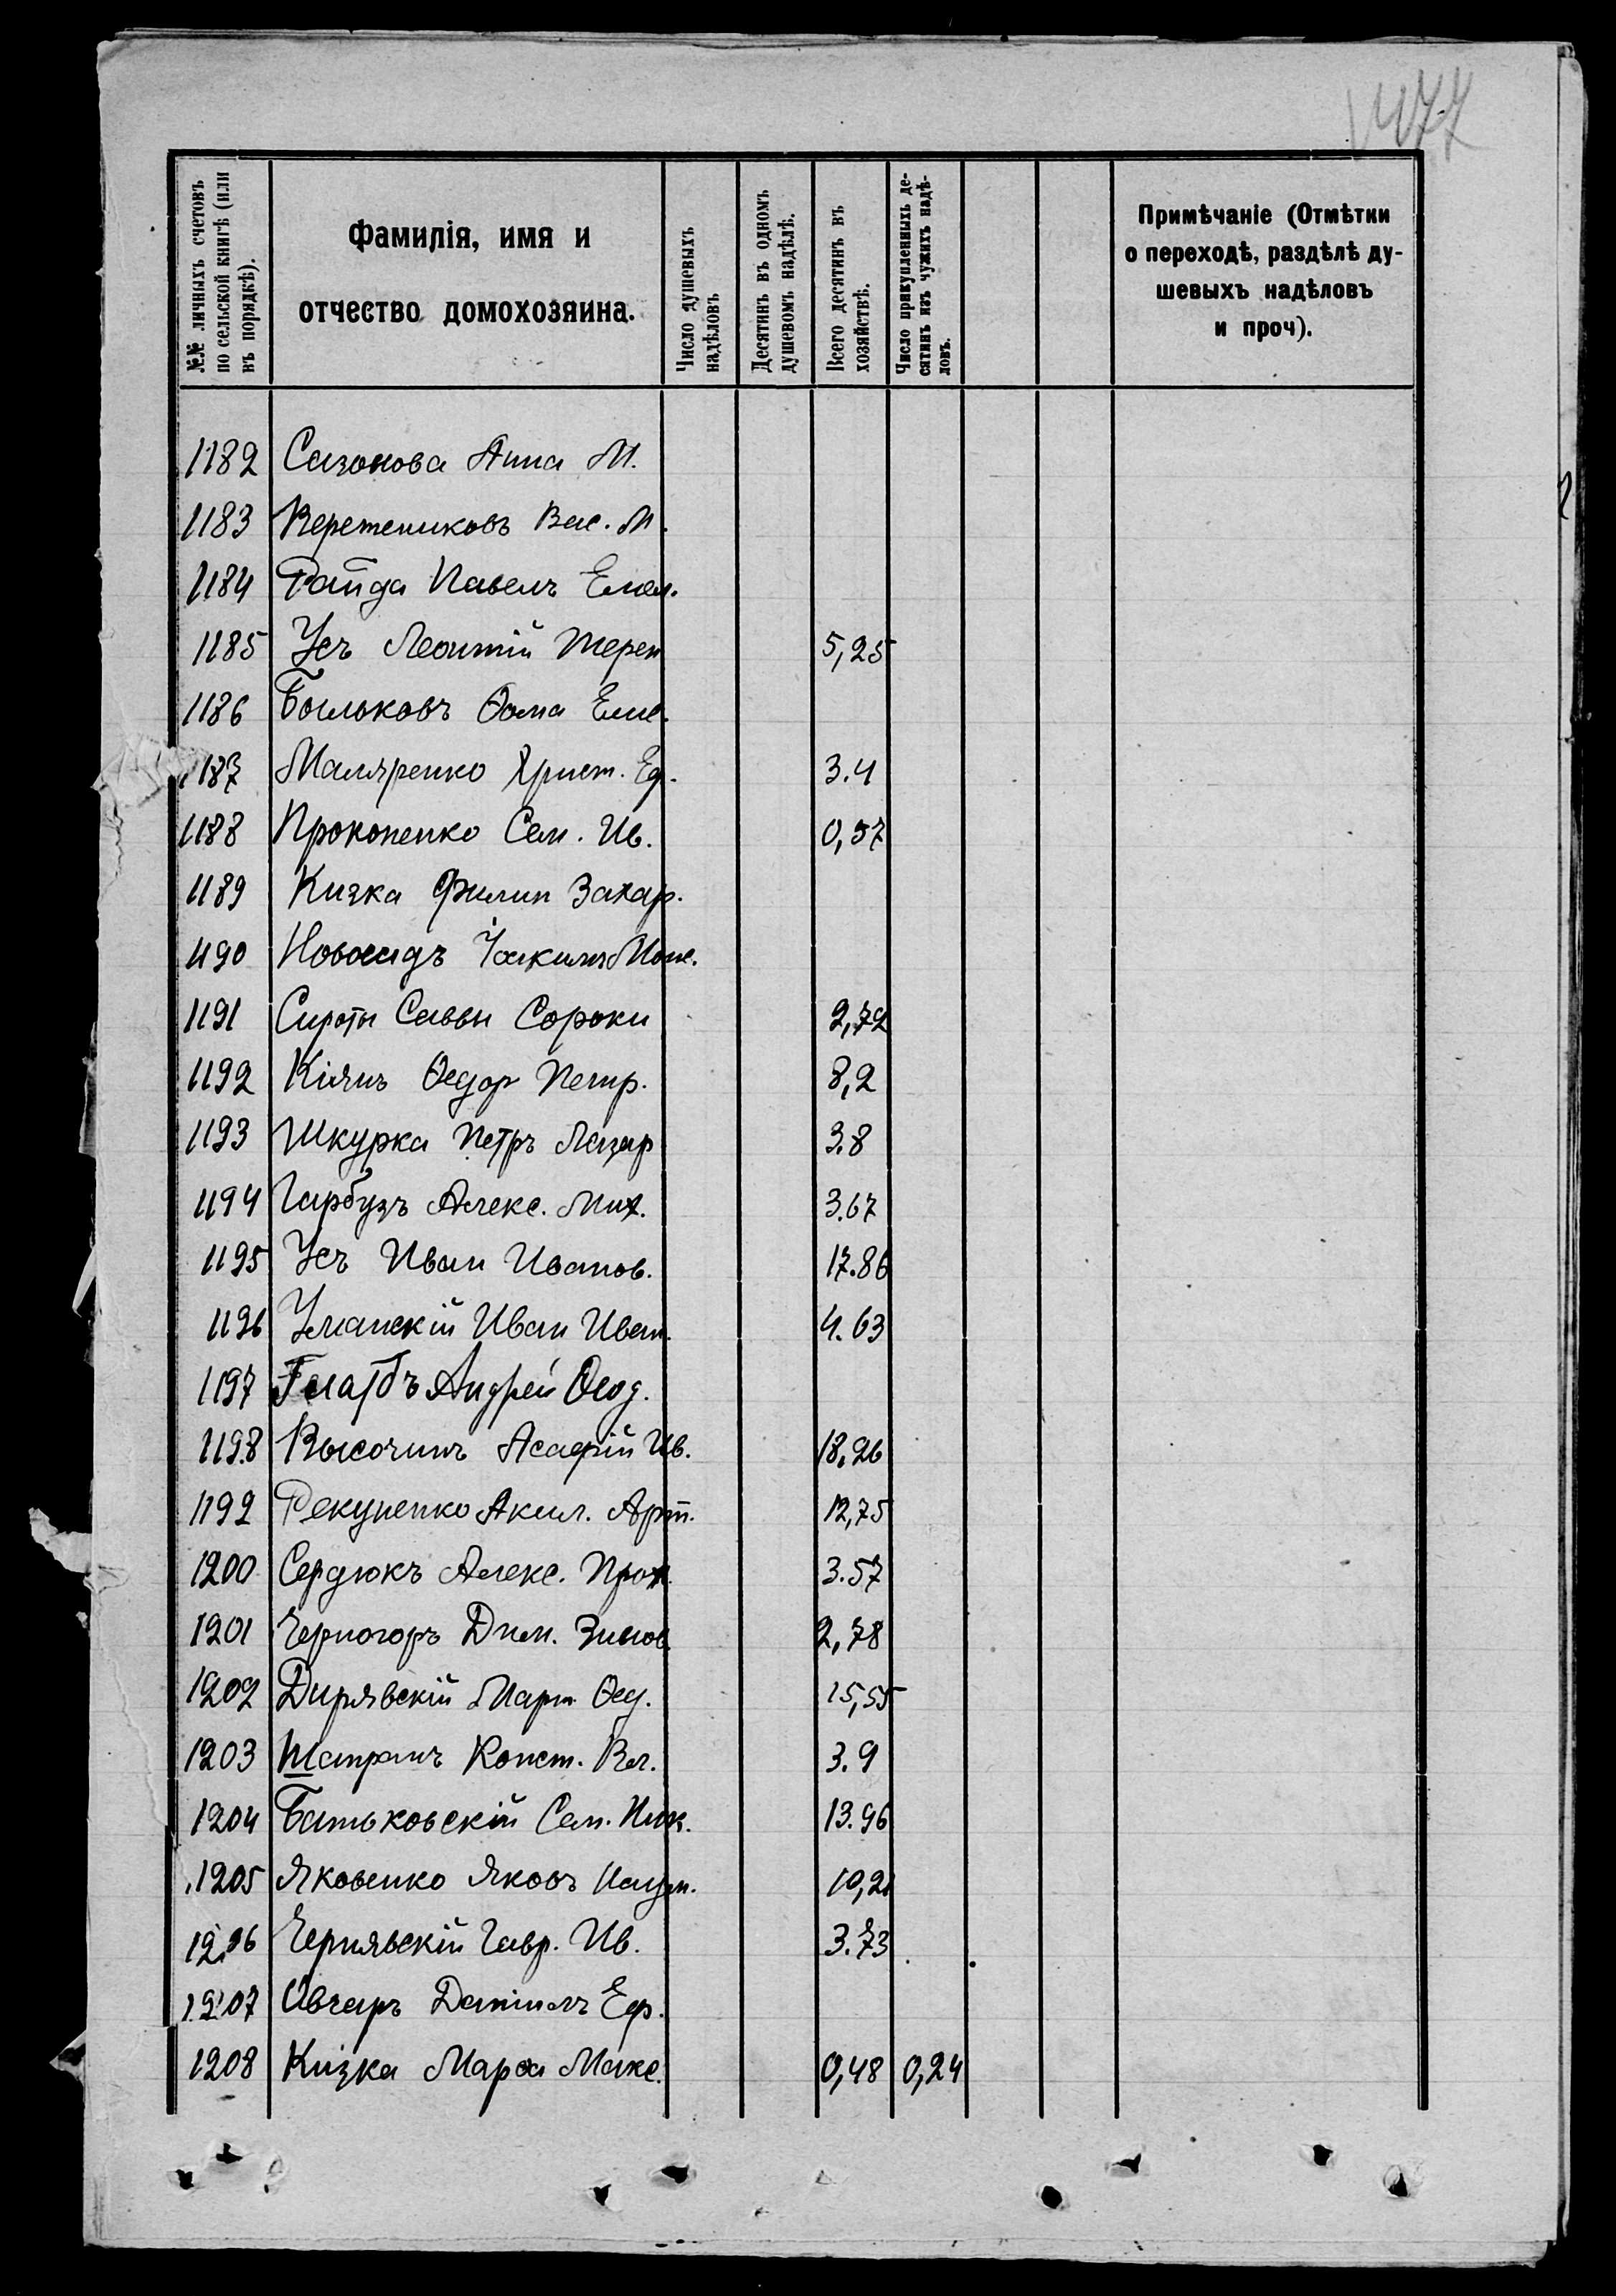 1477
№№ личныхъ счетовъ по сельской книгѣ (или въ порядкѣ).
Фамилія, имя и отчество домохозяина.
Число душевыхъ надѣловъ
Десятинъ въ одномъ душевомъ надѣлѣ.
Всего десятинъ въ хозяйствѣ.
Число прикупленныхъ десятинъ изъ чужихъ надѣловъ.
Примѣчаніе (Отмѣтки о переходѣ, раздѣлѣ душевыхъ надѣловъ и проч).
1182 Сазонова Анна М.
1183 Веретениковъ Вас. М.
1184 Гайда Павелъ Емел.
1185 Усъ Леонтій Терен 5,25
1186 Быльковъ Ѳома
1187 Маляренко Христ. Еф. 3.4
1188 Прокопенко Сем. Ив. 0,57
1189 Кизка Филип Захар.
1190
1191 Сироты Саввы Сороки 2,72
1192 Кіянъ Ѳедор Петр. 8,2
1193 Шкурка Петръ Лазар 3.8
1194 Гарбузъ Алекс. Мих. 3.67
1195 Усъ Иван Иванов. 17.86
1196 Уманскій Иван Иван. 4.63
1197 Андрей Ѳеод.
1198 Высочинъ Асафій Ив. 18,26
1199 Рекуненко Аким. Арт. 12,75
1200 Сердюкъ Алекс. Прок. 3.57
1201 Черногоръ Дим. Зинов. 2,78
1202 Дирявскій Март Ѳед. 15,55
1203 Шатранъ Конст. Вл. 3.9
1204 Батьковскій Сем. Ник. 13.96
1205 Яковенко Яковъ Наум. 10,21
1206 Чернявскій Гавр. Ив. 3.73
1207 Овчаръ Даніилъ Еф.
1208 Кізка Марѳа Макс. 0,48 0,24